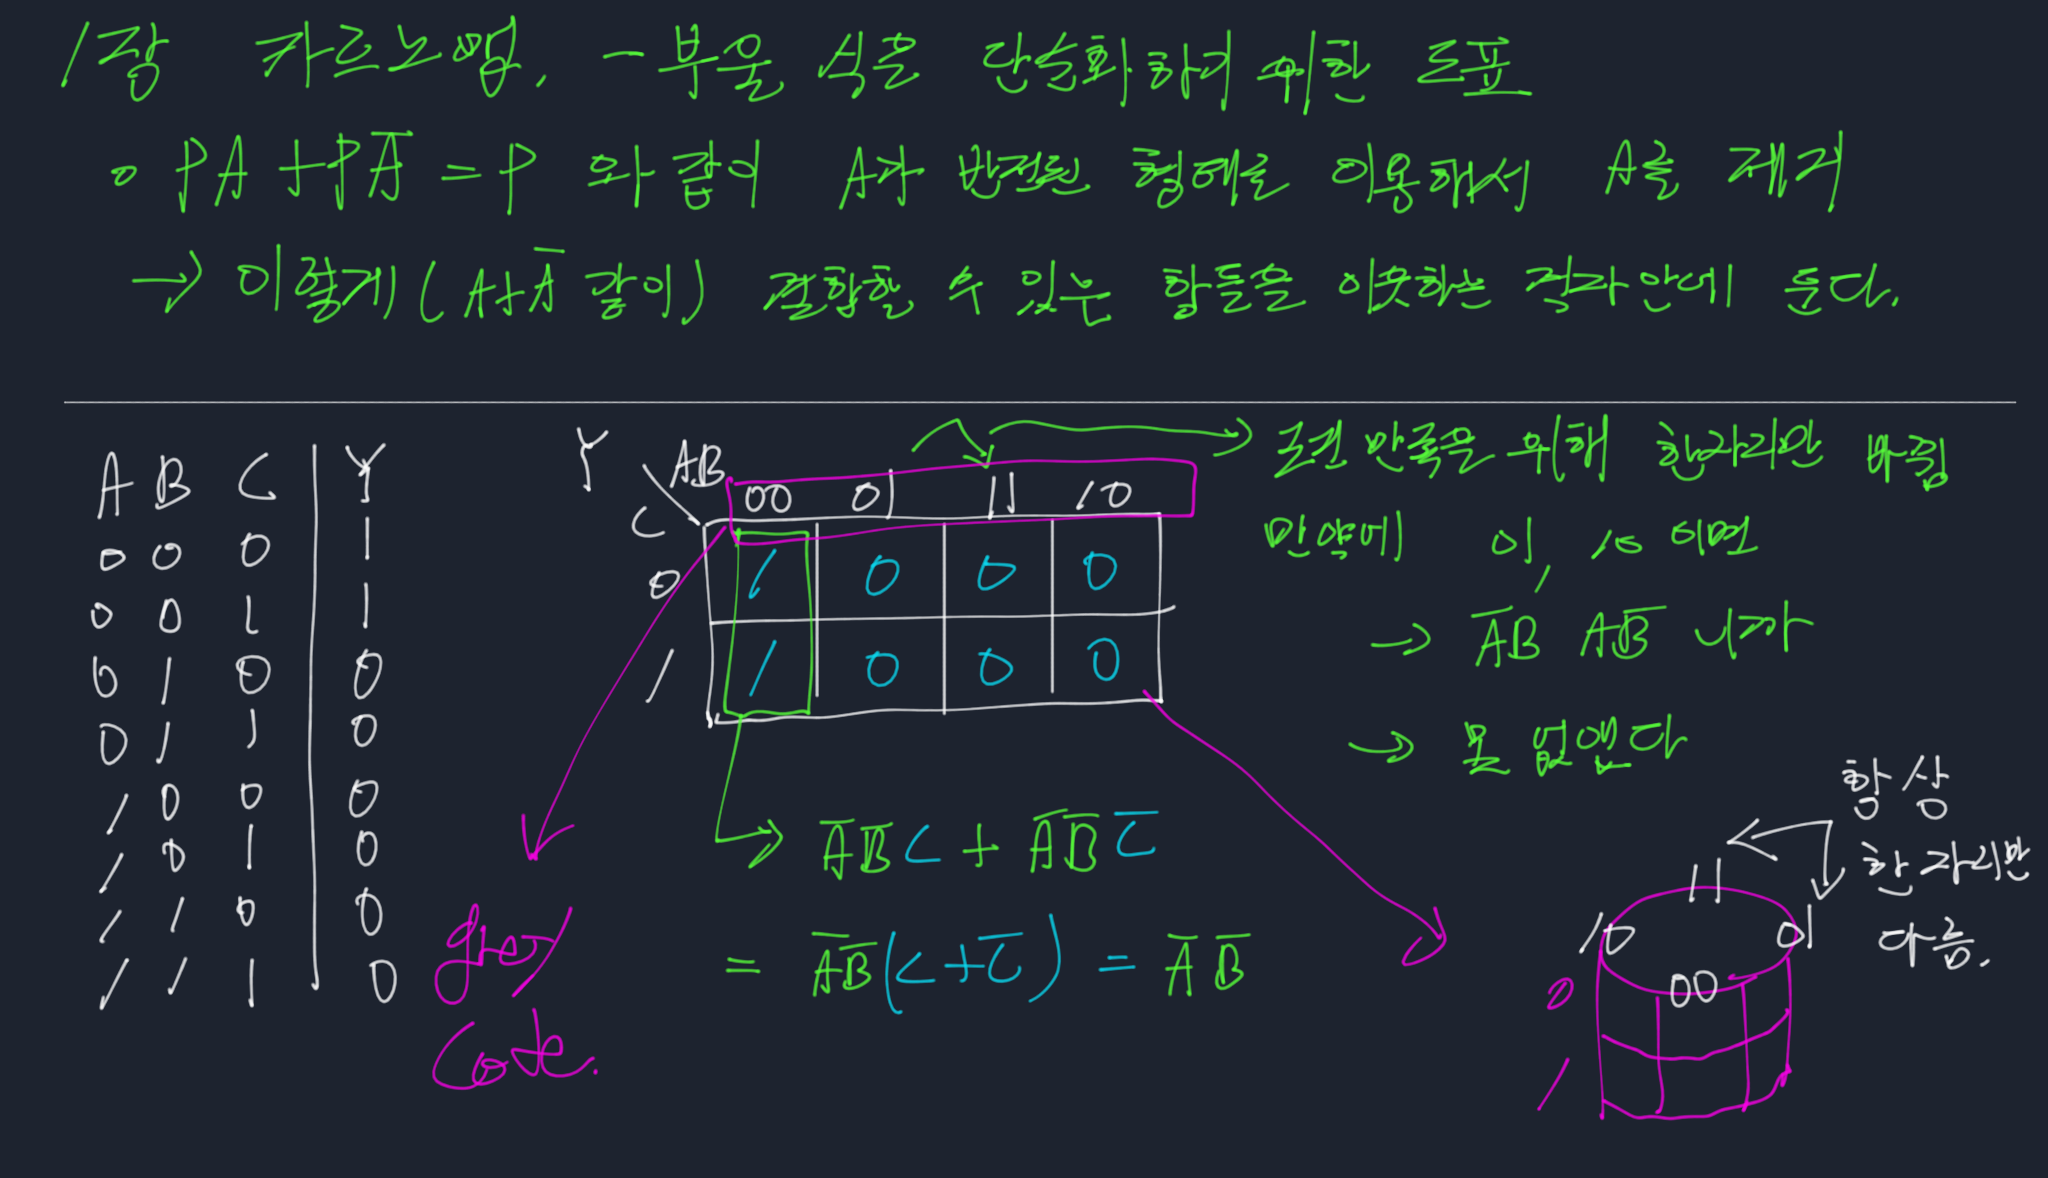 1장 카르노맵. - 부울 식을 단순화하기 위한 도표
o PA + PA̅ = P 와 같이 A가 반전된 형태를 이용해서 A를 제거
→ 이렇게 (A + A̅ 같이) 결합할 수 있는 항들을 이웃하는 격자 안에 둔다.
A B C | Y
0 0 0 | 1
0 0 1 | 1
0 1 0 | 0
0 1 1 | 0
1 0 0 | 0
1 0 1 | 0
1 1 0 | 0
1 1 1 | 0
Y AB
C
00 01 11 10
0 1 0 0 0
1 1 0 0 0
조건 만족을 위해 한자리만 바뀜
만약에 01, 10 이면
→ A̅B AB̅ 니까
→ 못 없앤다
A̅B̅C + A̅B̅C̅
= A̅B̅(C + C̅) = A̅B̅
gray
code.
항상
한자리만
다름.
11
10 01
00
0
1